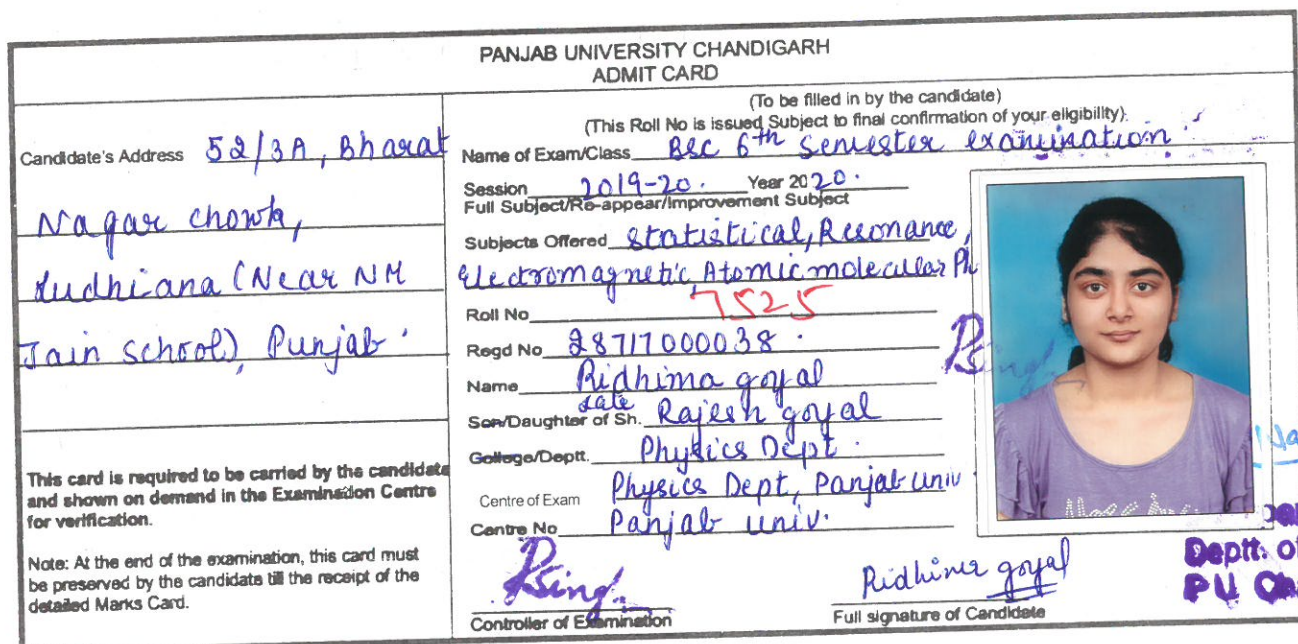 PANJAB UNIVERSITY CHANDIGARH
ADMIT CARD
Candidate's Address 52/3A, Bharat
Nagar chowk,
Ludhiana (Near NM
Jain school), Punjab.
This card is required to be carried by the candidate
and shown on demand in the Examination Centre
for verification.
Note: At the end of the examination, this card must
be preserved by the candidate till the receipt of the
detailed Marks Card.
(To be filled in by the candidate)
(This Roll No is issued Subject to final confirmation of your eligibility).
Name of Exam/Class Bsc 6th Semester examination
Session 2019-20. Year 2020.
Full Subject/Re-appear/Improvement Subject
Subjects Offered Statistical, Resonance,
Electromagnetic, Atomic molecular Ph
Roll No 7525
Regd No 28717000038.
Name Ridhima goyal
Son/Daughter of Sh. late Rajesh goyal
College/Deptt. Physics Dept.
Centre of Exam Physics Dept, Panjab Univ
Centre No Panjab univ.
Controller of Examination
Ridhima goyal
Full signature of Candidate
Deptt. of
PU